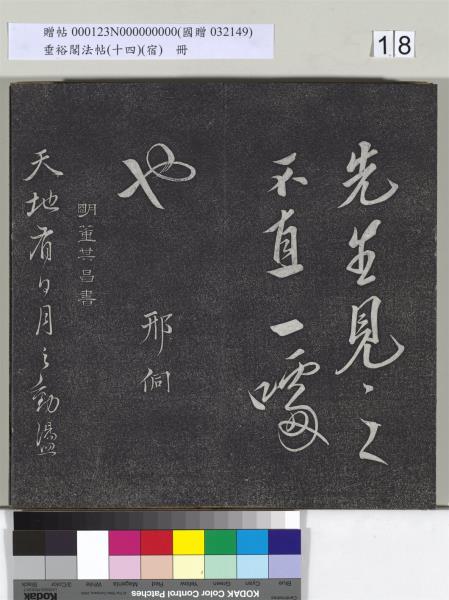 贈帖 000123N000000000(國贈 032149)
垂裕閣法帖(十四)(宿) 冊
18
先生見之
不直一噱
也
邢侗
明董其昌書
天地有日月之勤溫
Blue Cyan Green Yellow Red Magenta White 3/Color Black
KODAK Color Control Patches